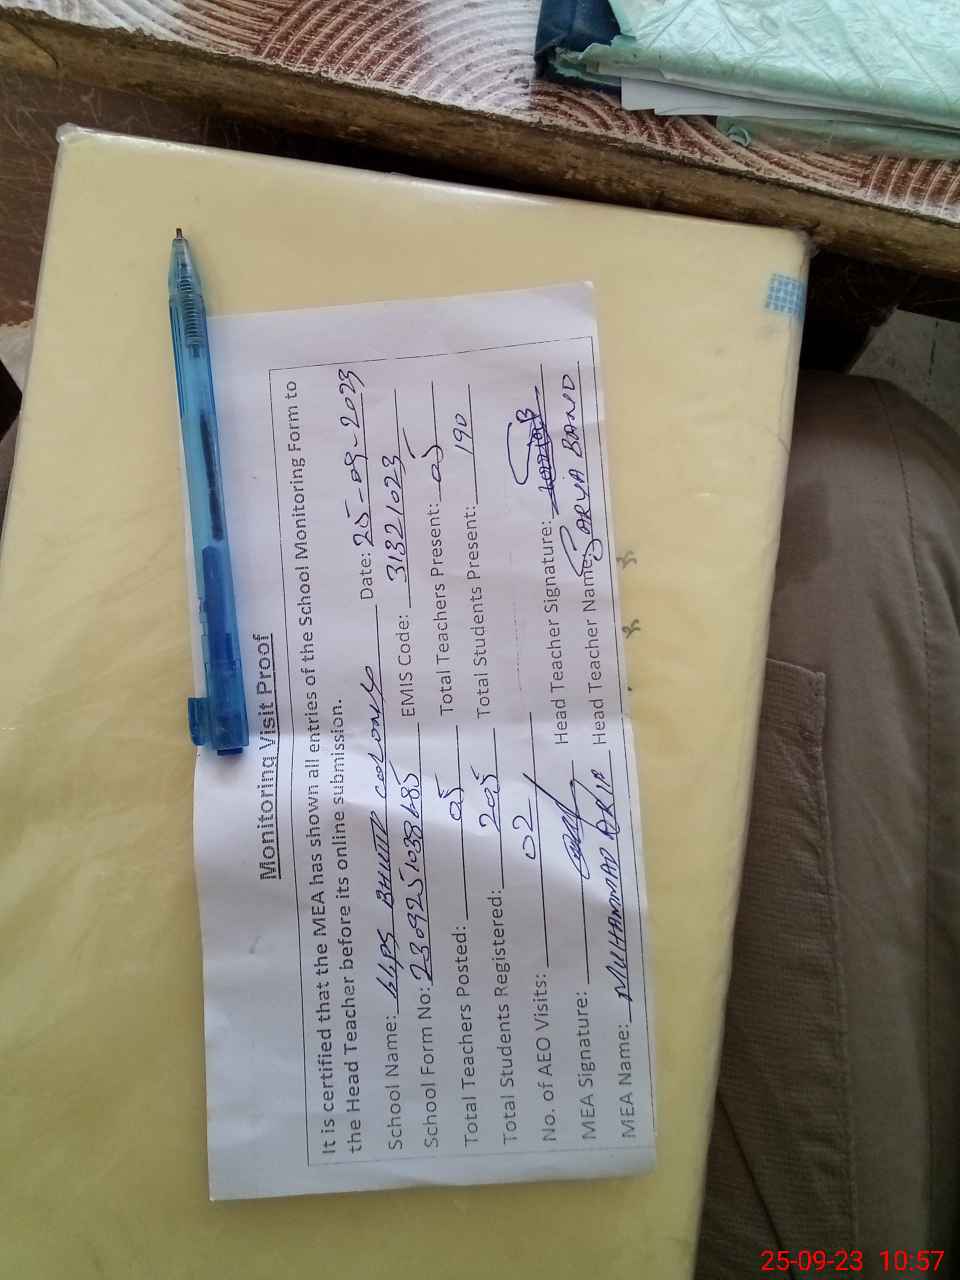 Monitoring Visit Proof
It is certified that the MEA has shown all entries of the School Monitoring Form to
the Head Teacher before its online submission.
School Name: GGPS BHUTTA COLONY Date: 25-09-2023
School Form No: EMIS Code: 31321023
Total Teachers Posted: 05 Total Teachers Present: 05
Total Students Registered: 205 Total Students Present: 190
No. of AEO Visits: 02
MEA Signature: Head Teacher Signature:
MEA Name: MUHAMMAD ARIF Head Teacher Name: BANO
25-09-23 10:57